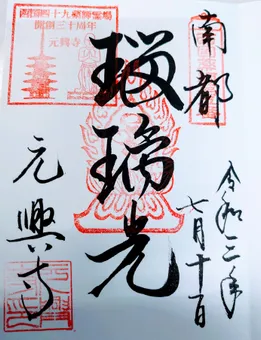 南都
令和三年
七月十一日
瑠璃光
元興寺
西国四十九薬師霊場
開創三十周年
元興寺